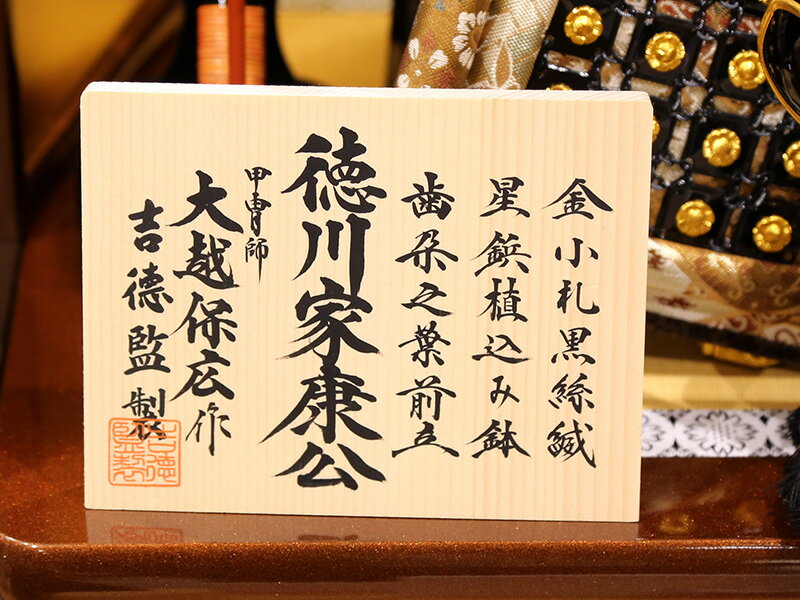 金小札黒絲縅
星鋲植込み鉢
歯朶之葉前立
徳川家康公
甲冑師
大越保広作
吉徳監製
吉徳監製